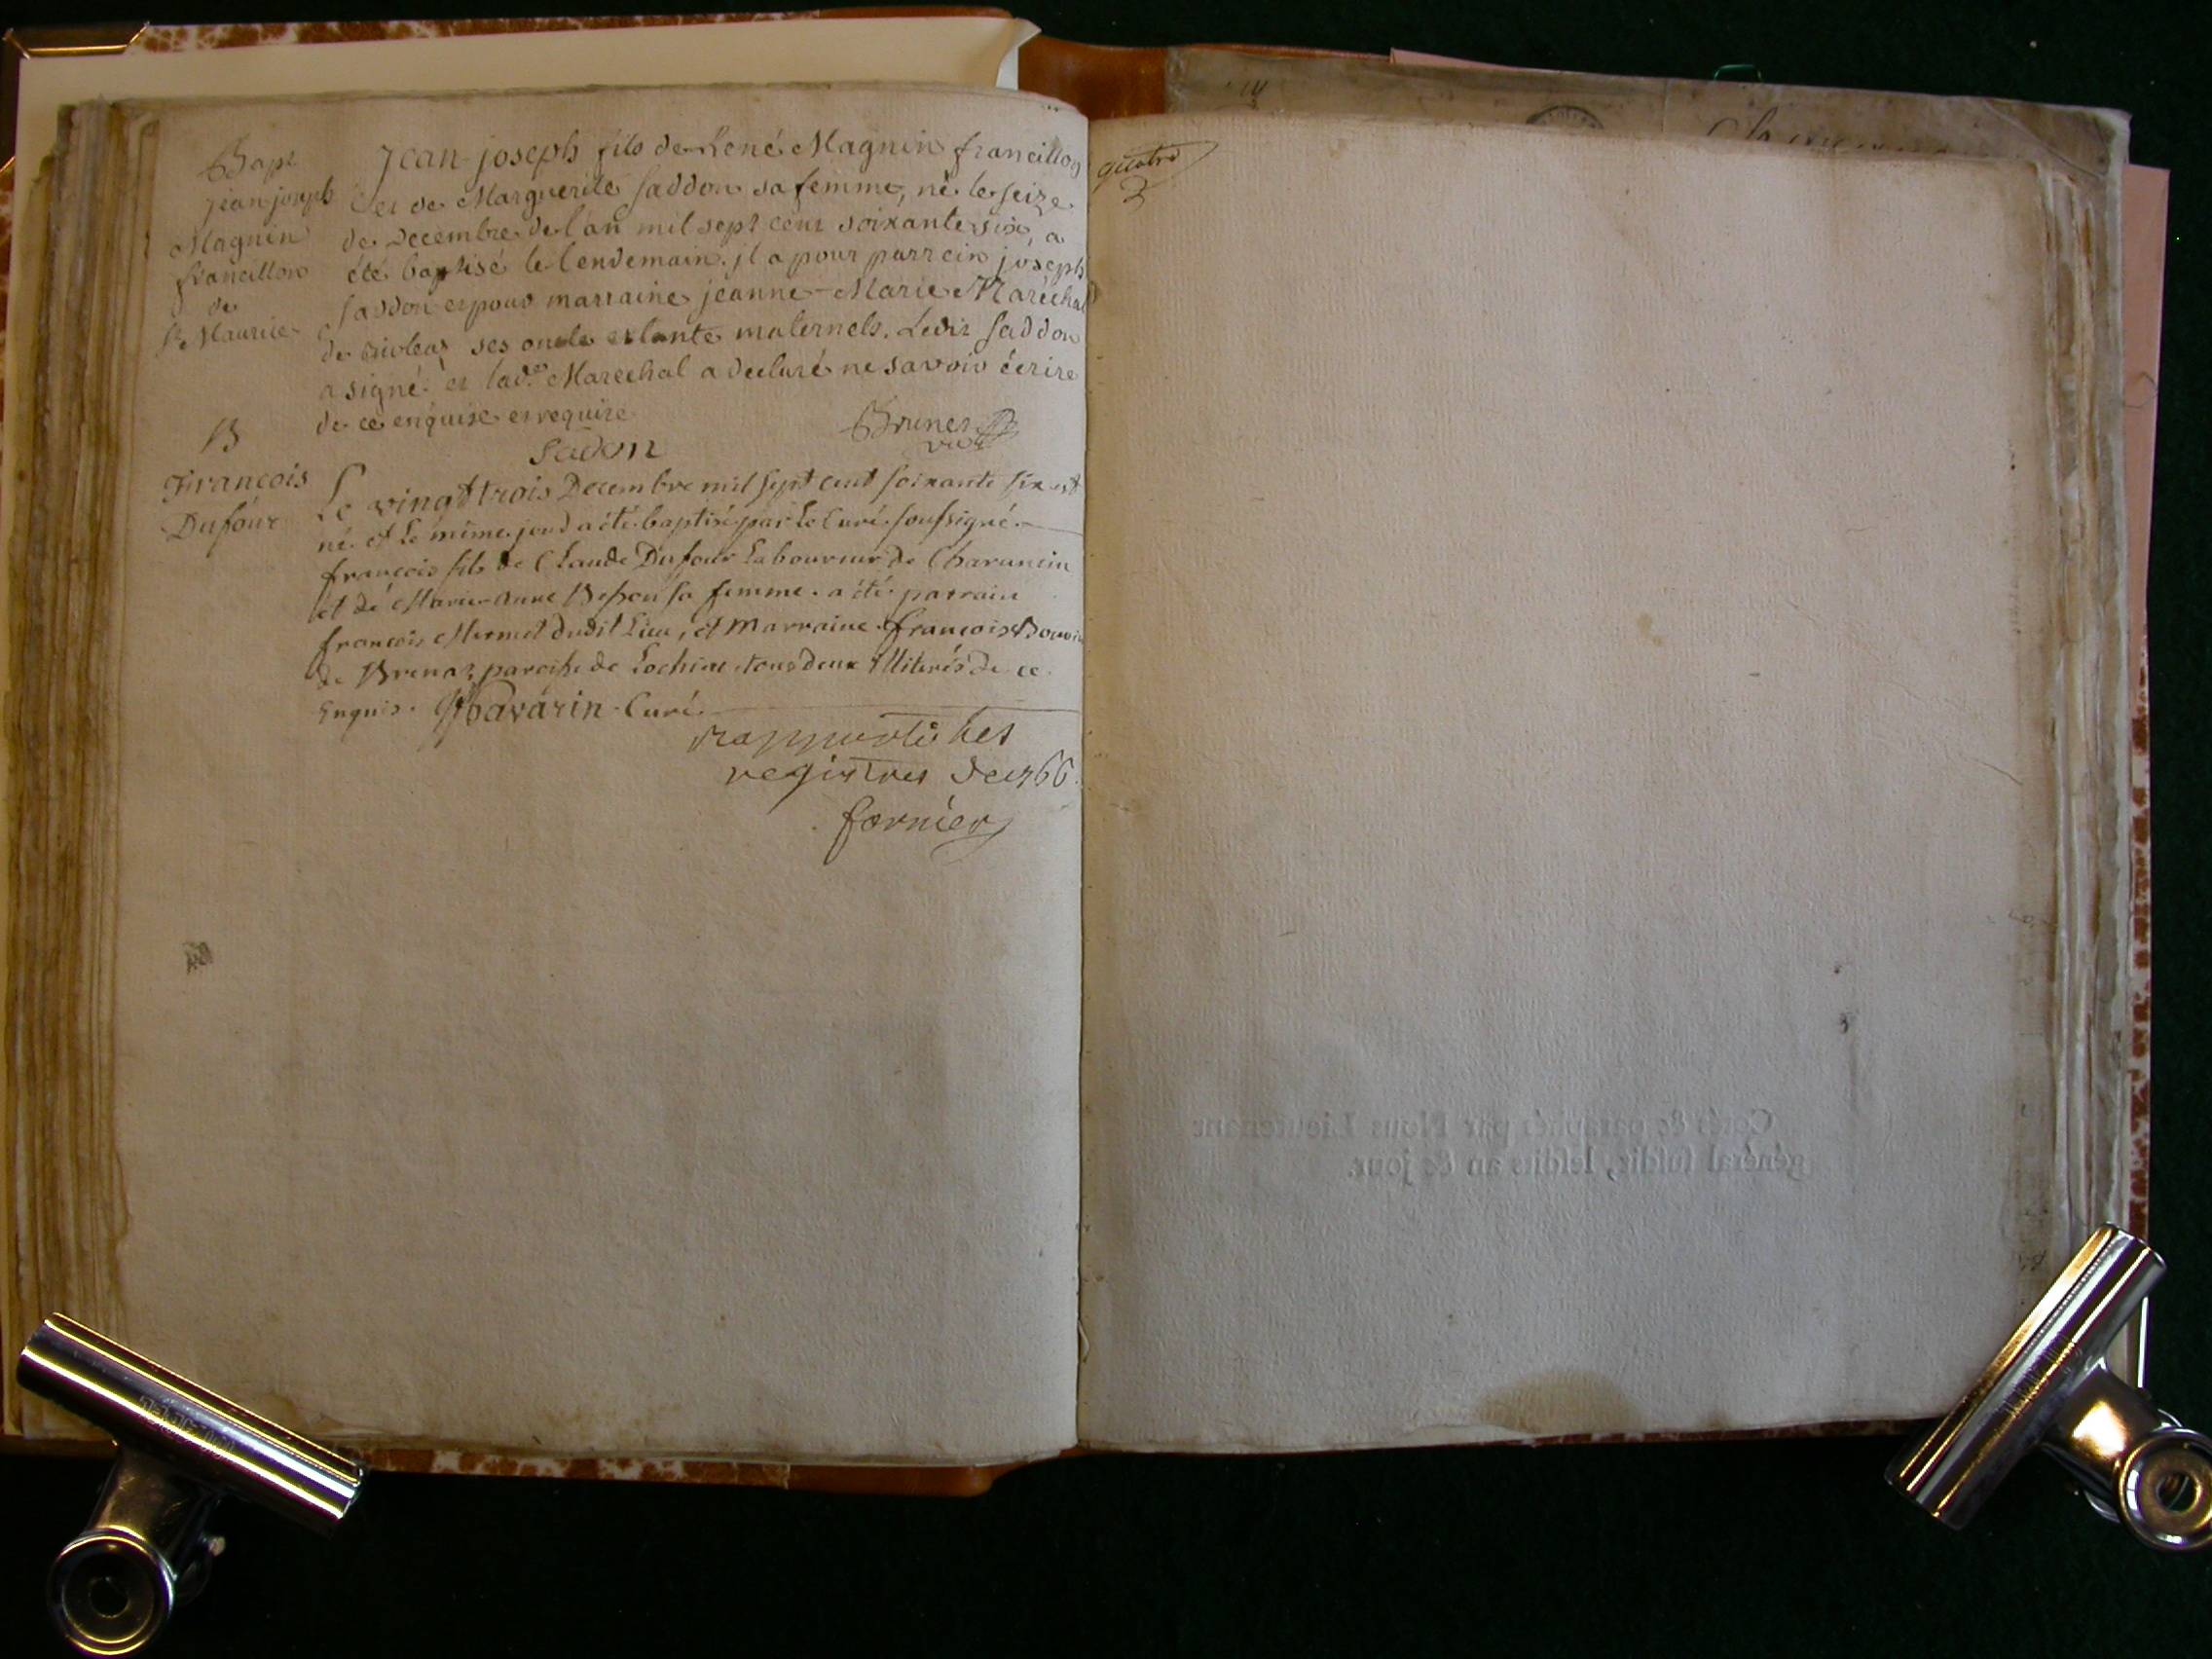 Bapt
jean joseph
Magnin
francillon
de
St Maurice
Jean-joseph fils de René Magnin francillon
et de Marguerite saddon sa femme, né le seize
de Decembre de l'an mil sept cent soixante six, a
été baptisé le lendemain. jl a pour parrein joseph
saddon et pour marraine jeanne-Marie Maréchal
de ses oncle et tante maternels. Ledit saddon
a signé et lad.e Marechal a declaré ne savoir écrire
de ce enquise et requise
Sadon
Brunet
vic
B
François
Dufour
Le vingt trois Decembre mil sept cent soixante six est
né et Le même jour a été baptisé par Le Curé soussigné
françois fils de Claude Dufour Laboureur de Charancin
et de Marie-Anne Besson sa femme. a été parrain
françois Mermet dudit Lieu, et Marraine françoise
de Brenaz paroisse de Lochieu tous deux illiterés de ce
Enquis. Pavarin Curé
rapporté les
registres de 1766.
fornier
quatre
Cotés & paraphés par Nous Lieutenant
général susdit, lesdits an & jour.